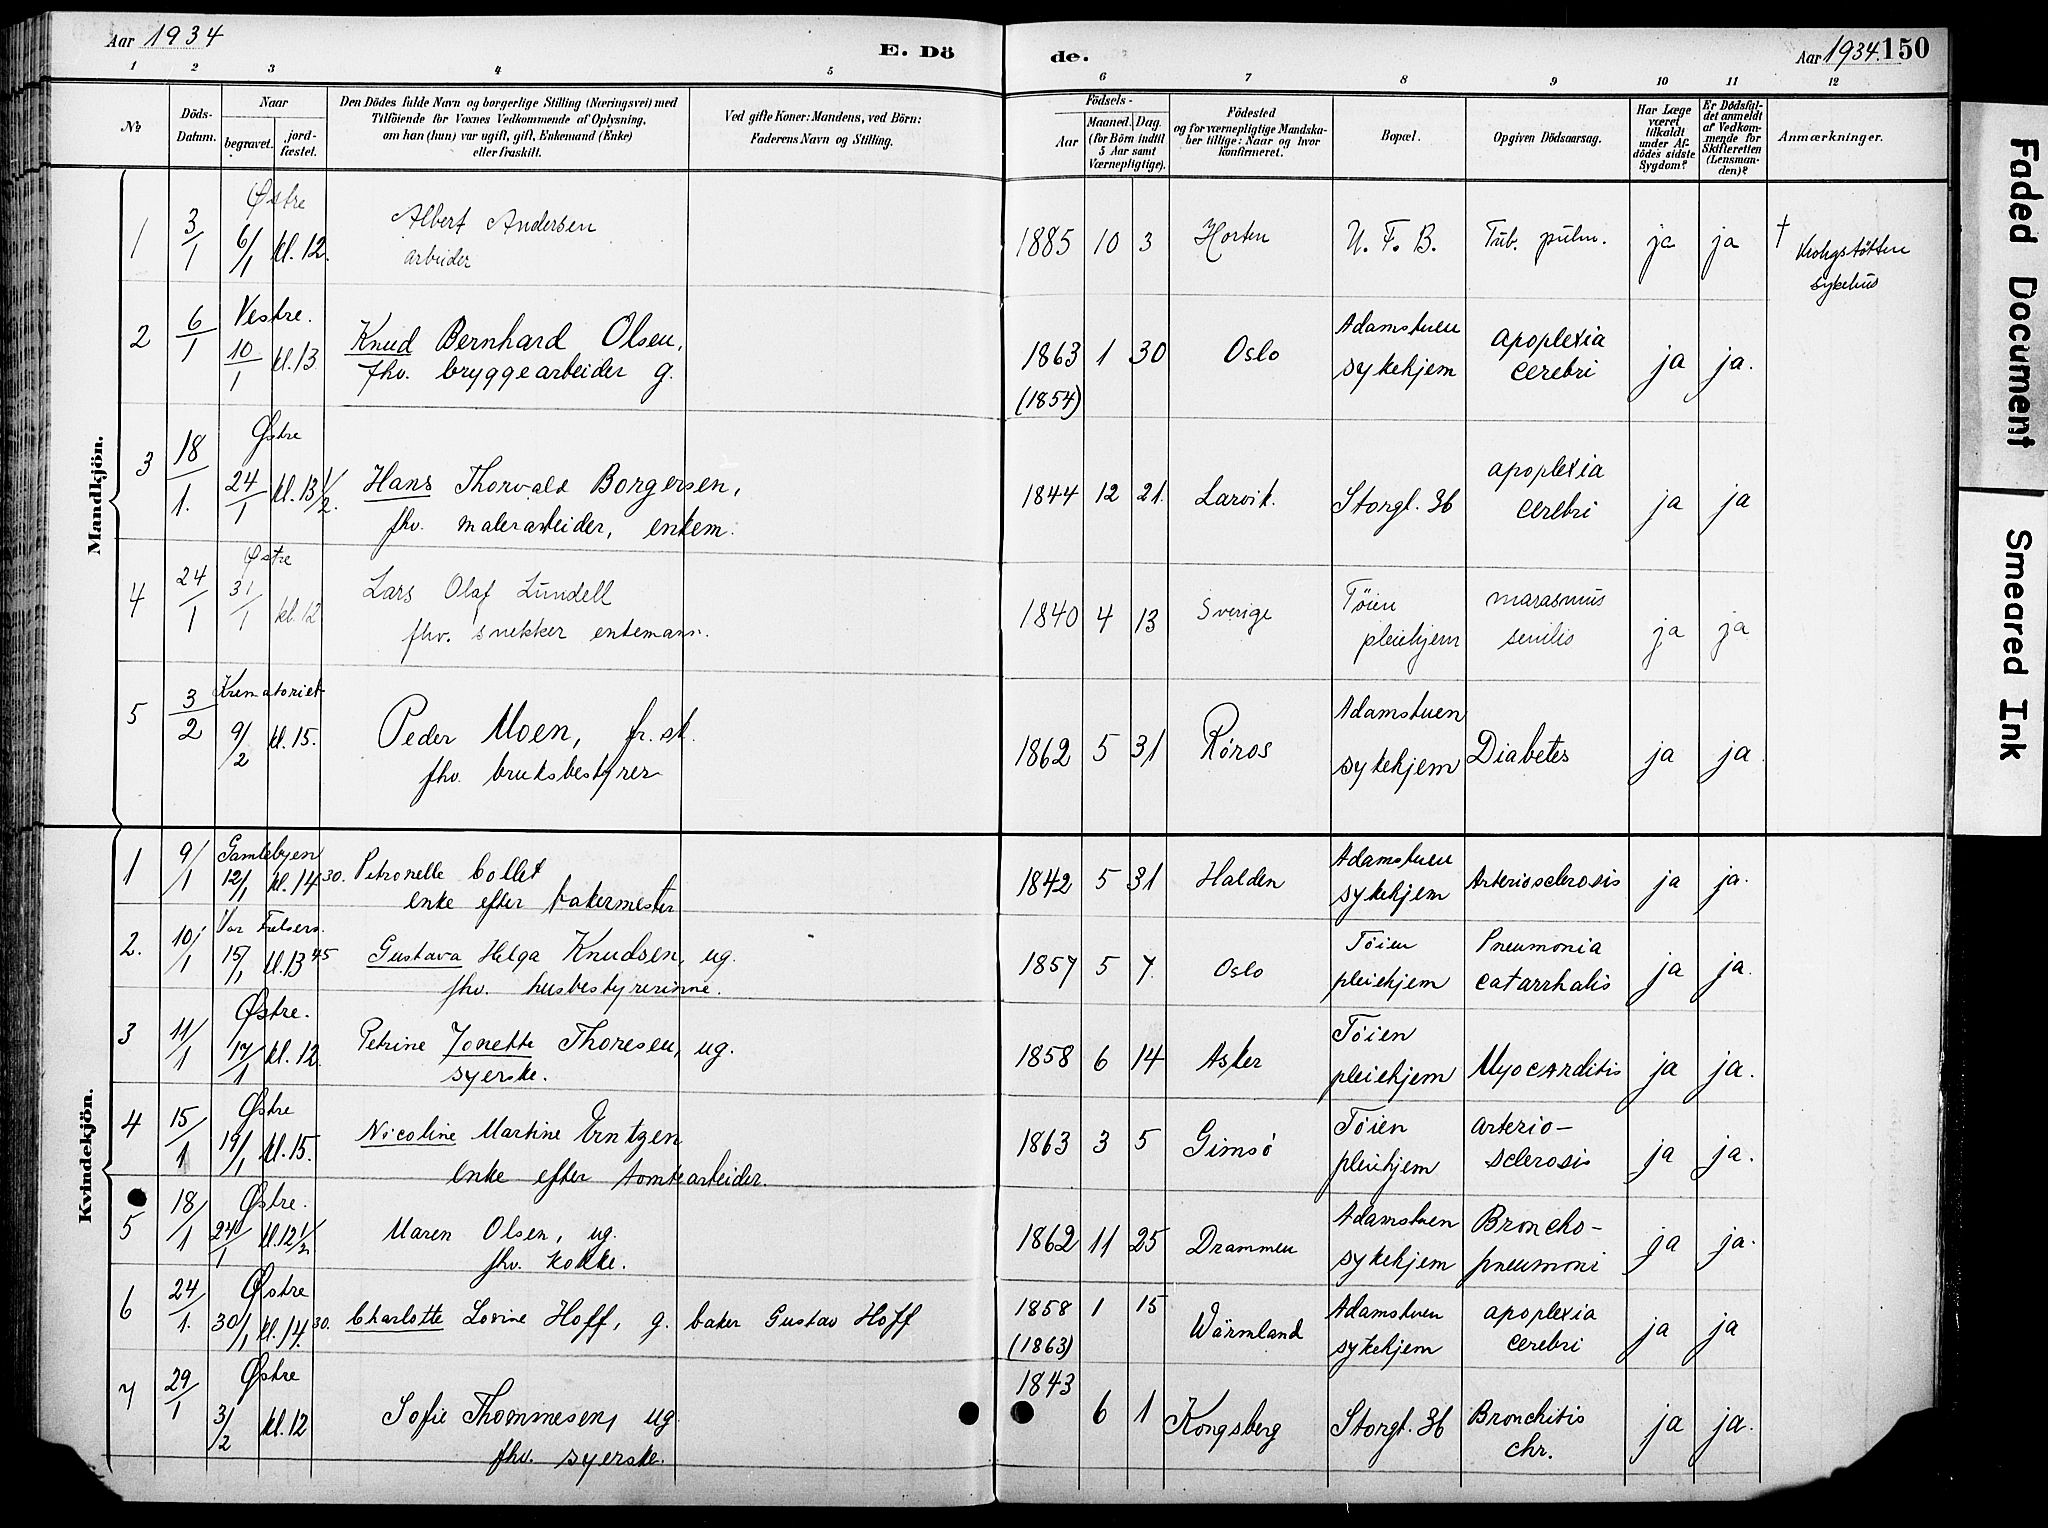 Aar 1934
E. Dö
de.
Aar 1934. 150
1 2 3 4 5 6 7 8 9 10 11 12
№
Döds-Datum.
Naar
begravet.
jordfæstet.
Den Dödes fulde Navn og borgerlige Stilling (Næringsvei) med
Tilföiende for Voxnes Vedkommende af Oplysning,
om han (hun) var ugift, gift, Enkemand (Enke)
eller fraskilt.
Ved gifte Koner: Mandens, ved Börn:
Faderens Navn og Stilling.
Födsels-
Aar
Maaned. Dag.
(for Börn indtil
5 Aar samt
Værnepligtige).
Födested
og for værnepligtige Mandskaber tillige: Naar og hvor
konfirmeret.
Bopæl.
Opgiven Dödsaarsag.
Har Læge
været
tilkaldt
under Afdödes sidste
Sygdom?
Er Dödsfaldet anmeldt
af Vedkommende for
Skifteretten
(Lensmanden)?
Anmærkninger.
Mandkjön.
1 3/1 Østre 6/1 kl. 12. Albert Andersen
arbeider
1885 10 3 Horten U. F. B. Tub. pulm. ja ja †
sykehus
2 6/1 Vestre. 10/1 kl. 13 Knud Bernhard Olsen,
fhv. bryggearbeider g.
1863 1 30 Oslo Adamstuen
sykehjem apoplexia
cerebri ja ja.
(1854)
3 18/1. Østre 24/1 kl. 13 1/2. Hans Thorvald Borgersen,
fhv. malerarbeider, enkem.
1844 12 21. Larvik. Storgt. 36 apoplexia
cerebri ja ja
4 24/1 Østre 31/1 kl. 12 Lars Olaf Lundell
fhv. snekker enkemann.
1840 4 13 Sverige Tøien
pleiehjem marasmus
senilis ja ja
5 3/2 Krematoriet 9/2 kl. 15. Peder Moen, fr. sk.
fhv. bruksbestyrer
1862 5 31 Røros Adamstuen
sykehjem Diabetes ja ja
Kvindekjön.
1 9/1 Gamlebyen 12/1 kl. 14 30. Petronelle Collet
enke efter bakermester
1842 5 31 Halden Adamstuen
sykehjem Arteriosclerosis ja ja.
2. 10/1 Vor Frelsers. 15/1 kl. 13 45 Gustava Helga Knudsen, ug.
fhv. husbestyrerinne.
1857 5 7. Oslo Tøien
pleiehjem Pneumonia
catarrhalis ja ja.
3 11/1 Østre. 17/1 kl. 12 Petrine Jonette Thoresen, ug.
syerske.
1858 6 14 Asker Tøien
pleiehjem Myocarditis ja ja.
4 15/1 Østre 19/1 kl. 15. Nicoline Martine Erntzen
enke efter tomtearbeider.
1863 3 5 Gimsø Tøien
pleiehjem arterio-
sclerosis ja ja.
5 18/1 Østre. 24/1 kl. 12 1/2 Maren Olsen, ug.
fhv. kokke.
1862 11 25 Drammen Adamstuen
sykehjem Broncho-
pneumoni ja ja.
6 24/1. Østre 30/1 kl. 14. 30. Charlotte Lovine Hoff, g. baker Gustav Hoff
1858 1 15 Wärmland Adamstuen
sykehjem apoplexia
cerebri ja ja
(1863)
7 29/1 Østre 3/2 kl. 12 Sofie Thommesen, ug.
fhv. syerske.
1843 6 1 Kongsberg Storgt. 36 Bronchitis
chr. ja ja.
Faded Document
Smeared Ink